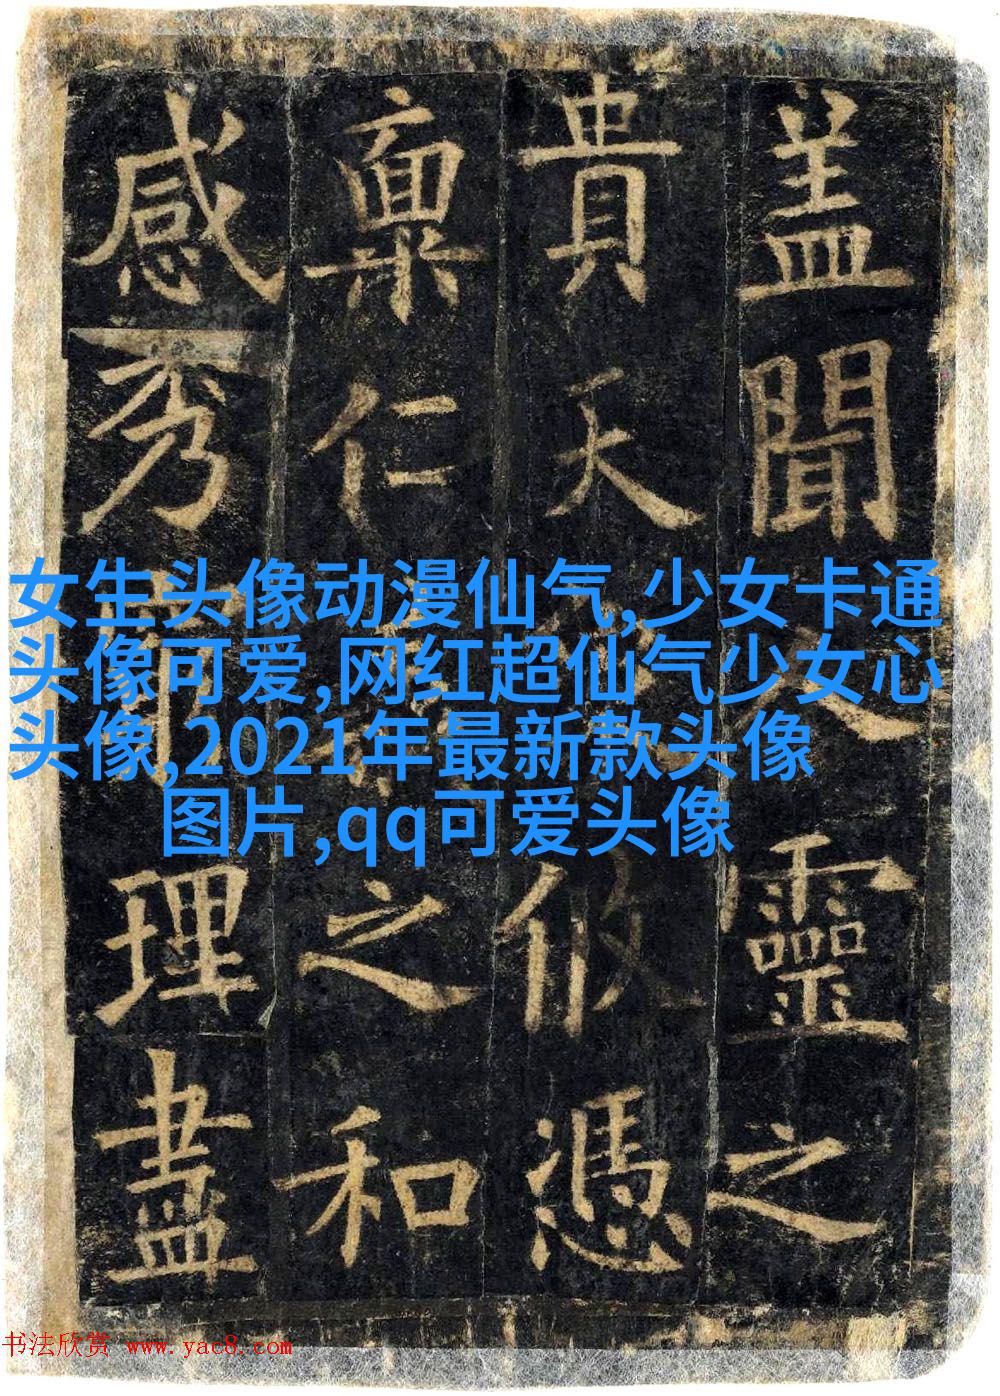 盖聞靈之
貴天攸憑
稟仁之和
感秀理盡
女生头像动漫仙气,少女卡通
头像可爱,网红超仙气少女心
头像,2021年最新款头像
图片,qq可爱头像
书法欣赏 www.yac8.com